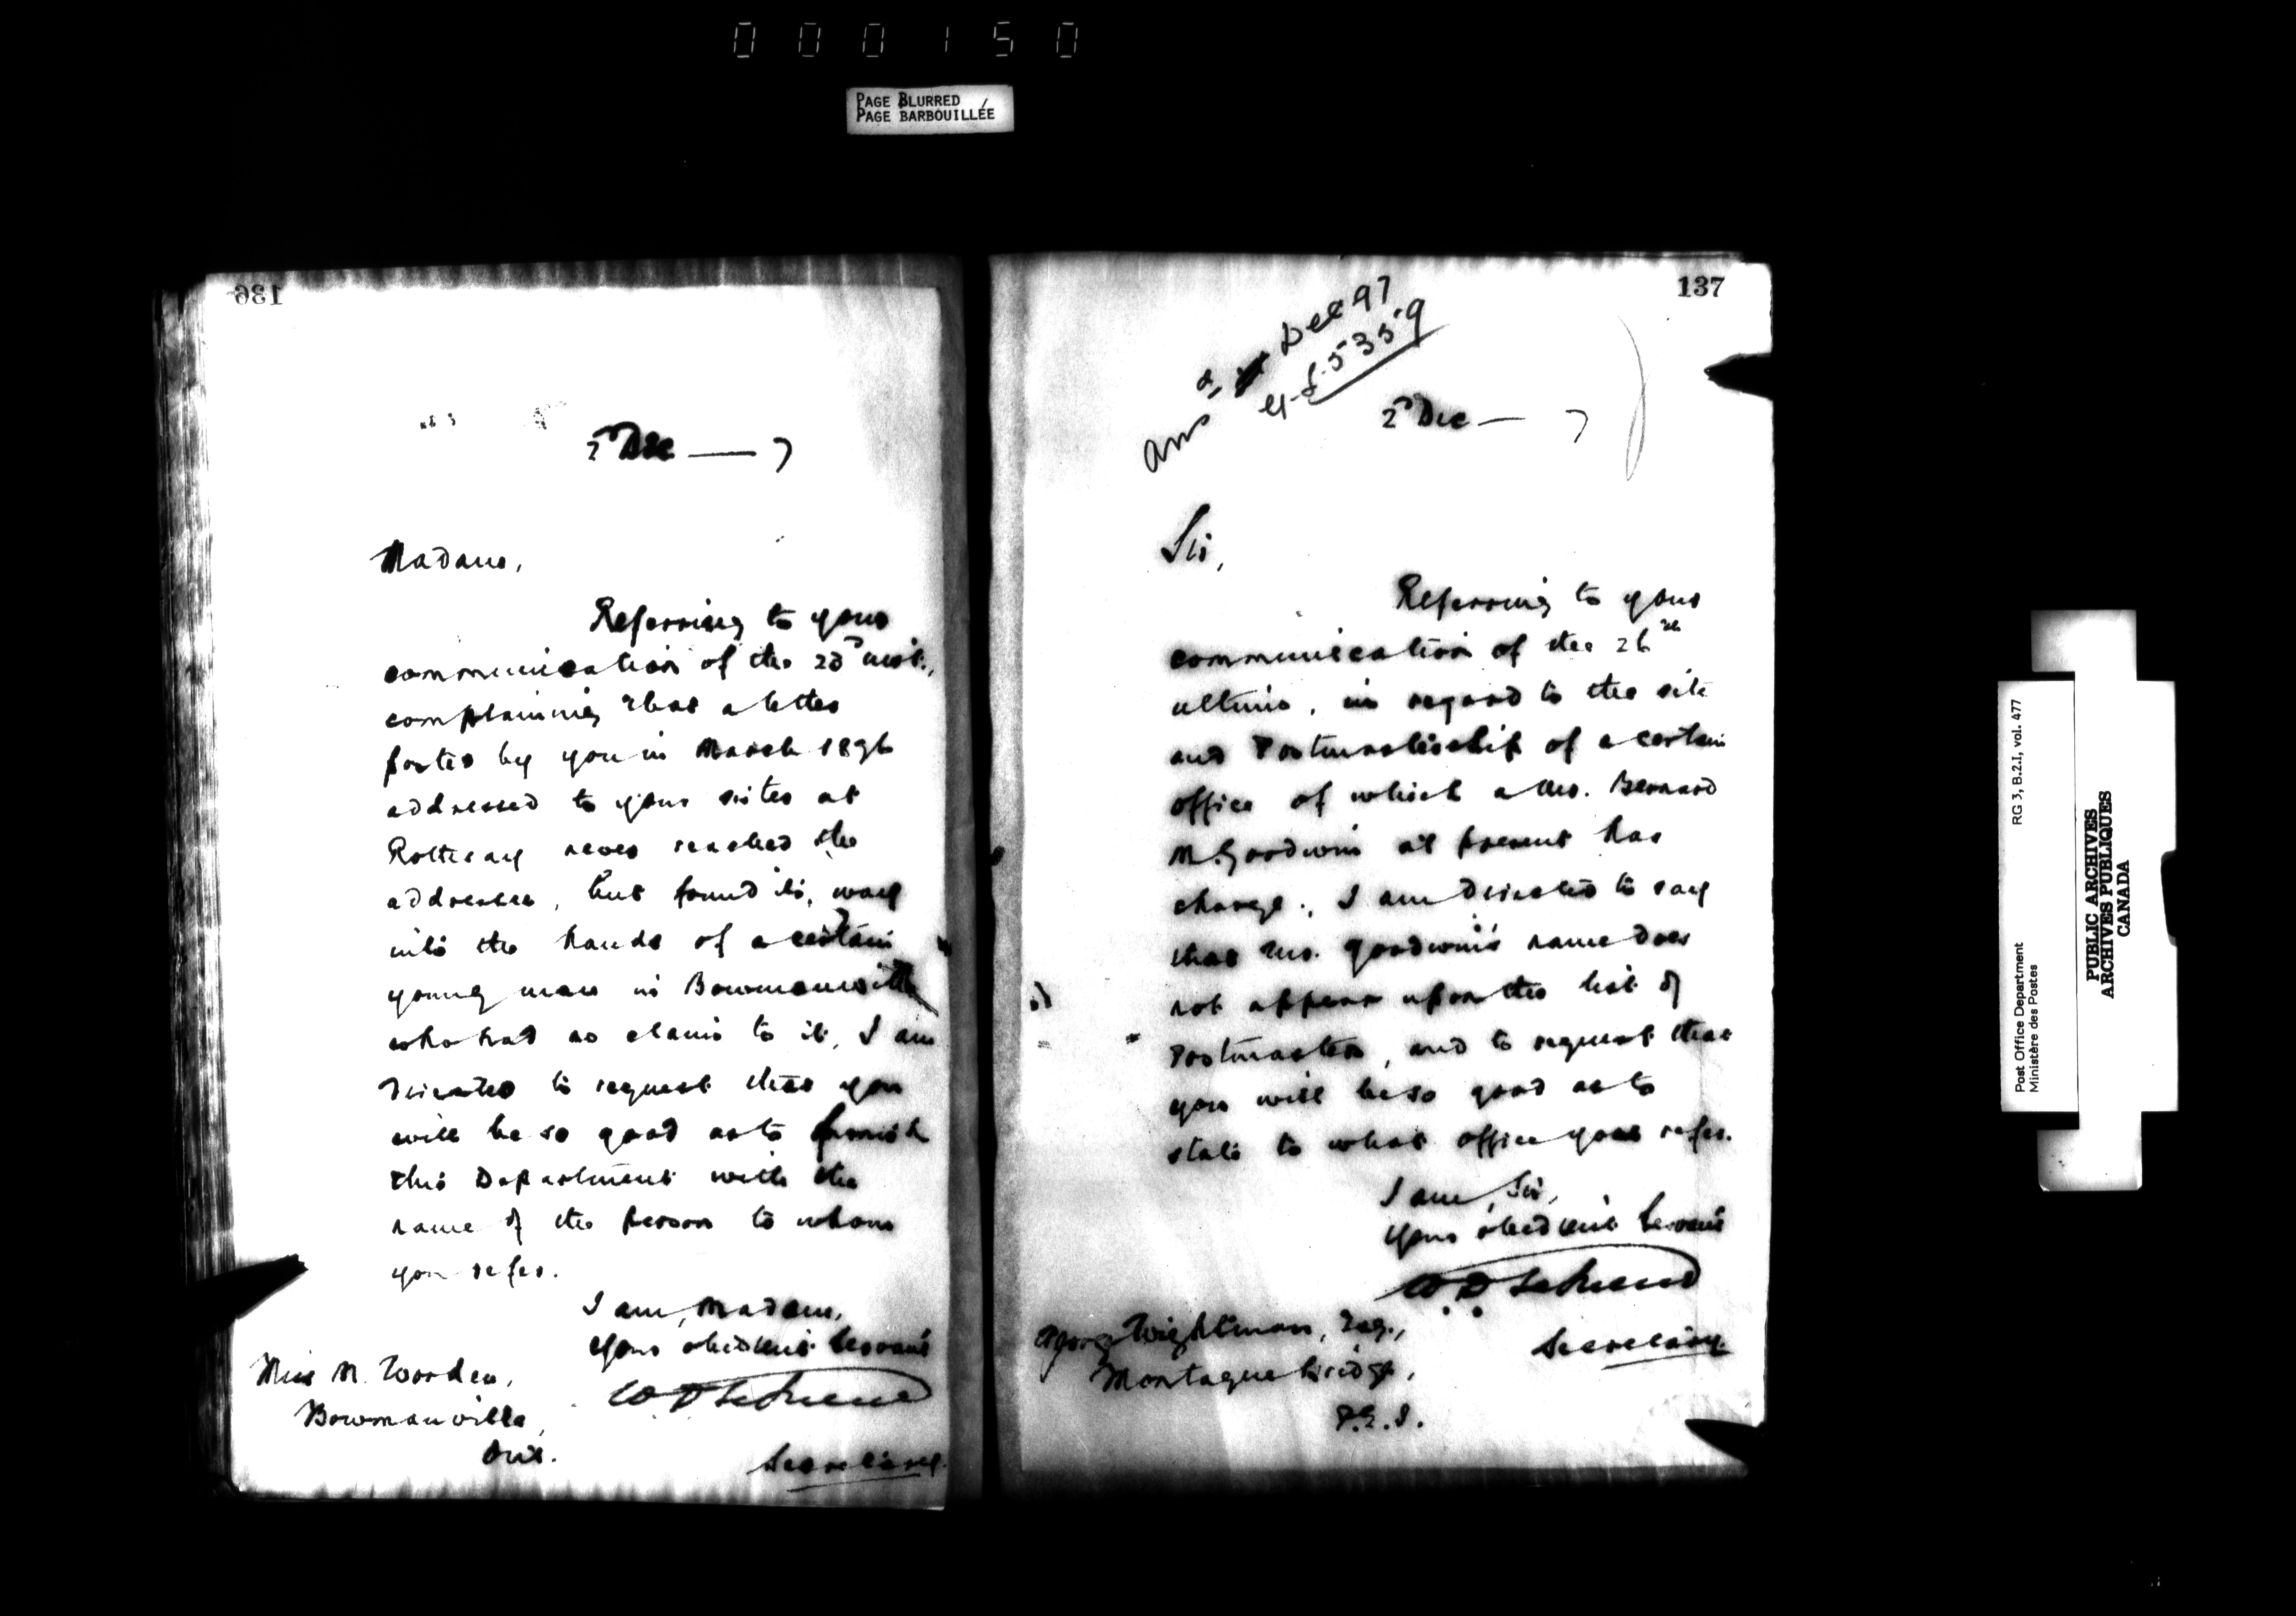 000150
PAGE BLURRED
PAGE BARBOUILLÉE
136
2d Dec — 7
Madam,
Referring to your
communication of the 23d inst.,
complaining that a letter
posted by you in March 1896
addressed to your sister at
Rothesay never reached the
addressee, but found its way
into the hands of a certain
young man in Bowmanville
who had no claim to it, I am
directed to request that you
will be so good as to furnish
this Department with the
name of the person to whom
you refer.
I am, Madam,
Your obedient servant
Secretary.
Miss M. Worden,
Bowmanville,
Ont.
137
Ans Dec 97
5359
2d Dec — 7
Sir,
Referring to your
communication of the 26th
ultimo, in regard to the site
and Postmastership of a certain
office of which a Mr. Bernard
McGoodwin at present has
charge, I am directed to say
that Mr. Goodwin's name does
not appear upon the list of
Postmasters, and to request that
you will be so good as to
state to what office you refer.
I am, Sir,
Your obedient servant
Secretary.
George Wightman, Esq.,
Montague Bridge,
P.E.I.
Post Office Department
Ministère des Postes
RG 3, B.2.I, vol. 477
PUBLIC ARCHIVES
ARCHIVES PUBLIQUES
CANADA